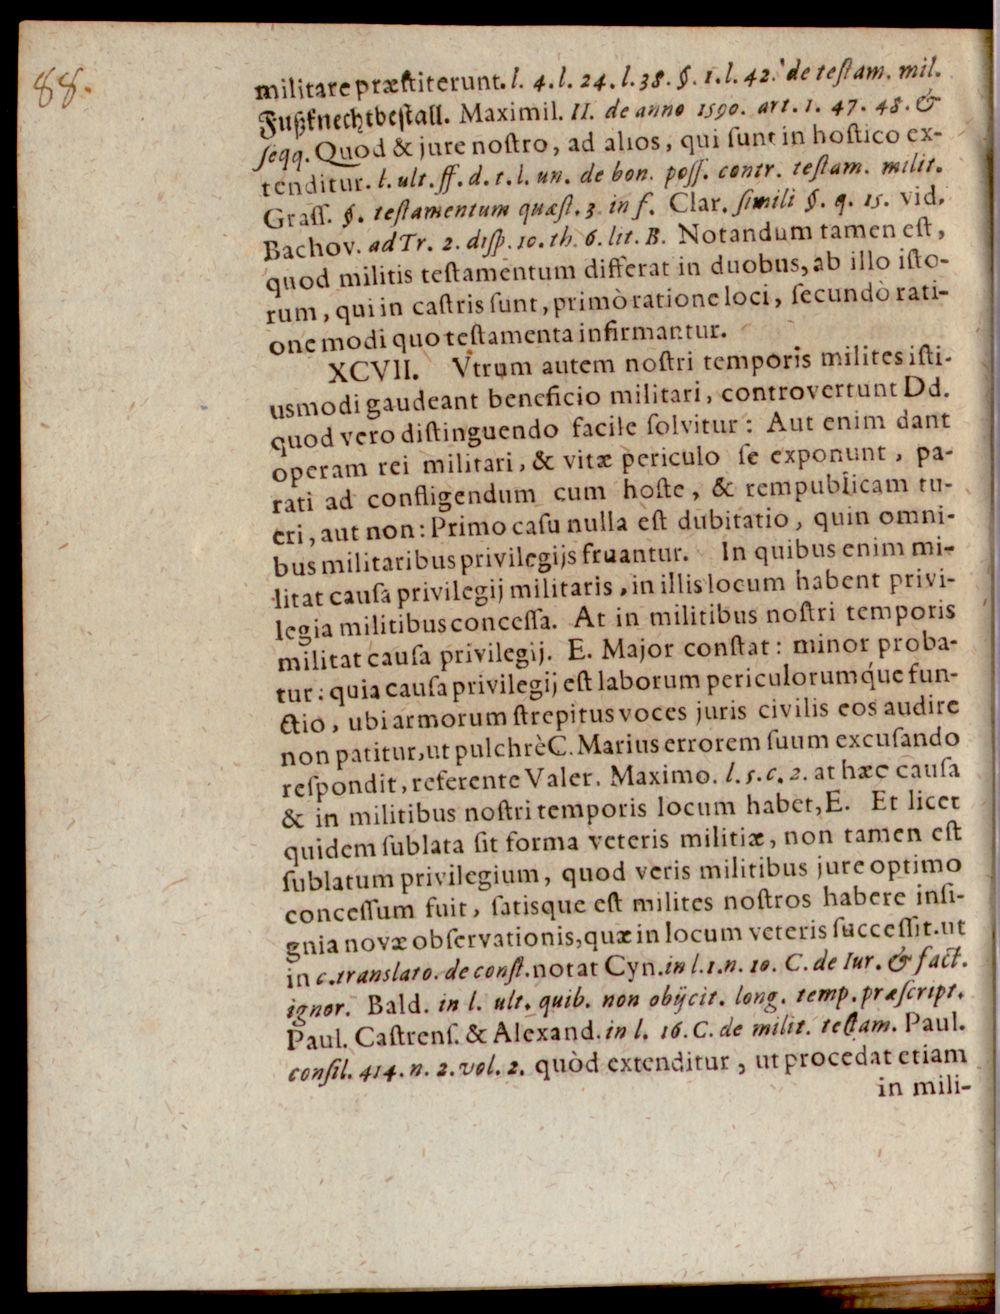 88.
militare præſtiterunt. l. 4. l. 24. l. 38. §. 1. l. 42. de teſtam. mil.
Fußknechtbeſtall. Maximil. II. de anno 1590. art. 1. 47. 48. &
ſeqq. Quod & jure noſtro, ad alios, qui ſunt in hoſtico ex-
tenditur. l. ult. ff. d. t. l. un. de bon. poſſ. contr. teſtam. milit.
Graſſ. §. teſtamentum quæſt. 3. in f. Clar. ſimili §. q. 15. vid.
Bachov. ad Tr. 2. diſp. 10. th. 6. lit. B. Notandum tamen eſt,
quod militis teſtamentum differat in duobus, ab illo iſto-
rum, qui in caſtris ſunt, primò ratione loci, ſecundò rati-
one modi quo teſtamenta infirmantur.
XCVII. Vtrum autem noſtri temporis milites iſti-
usmodi gaudeant beneficio militari, controvertunt Dd.
quod vero diſtinguendo facile ſolvitur: Aut enim dant
operam rei militari, & vitæ periculo ſe exponunt, pa-
rati ad confligendum cum hoſte, & rempublicam tu-
eri, aut non: Primo caſu nulla eſt dubitatio, quin omni-
bus militaribus privilegijs fruantur. In quibus enim mi-
litat cauſa privilegij militaris, in illis locum habent privi-
legia militibus conceſſa. At in militibus noſtri temporis
militat cauſa privilegij. E. Major conſtat: minor proba-
tur: quia cauſa privilegij eſt laborum periculorumq́ue fun-
ctio, ubi armorum ſtrepitus voces juris civilis eos audire
non patitur, ut pulchrè C. Marius errorem ſuum excuſando
reſpondit, referente Valer. Maximo. l. 5. c. 2. at hæc cauſa
& in militibus noſtri temporis locum habet, E. Et licet
quidem ſublata ſit forma veteris militiæ, non tamen eſt
ſublatum privilegium, quod veris militibus jure optimo
conceſſum fuit, ſatisque eſt milites noſtros habere inſi-
gnia novæ obſervationis, quæ in locum veteris ſucceſſit. ut
in c. translato. de conſt. notat Cyn. in l. 1. n. 10. C. de Iur. & fact.
ignor. Bald. in l. ult. quib. non obijcit. long. temp. præſcript.
Paul. Caſtrenſ. & Alexand. in l. 16. C. de milit. teſtam. Paul.
conſil. 414. n. 2. vol. 2. quòd extenditur, ut procedat etiam
in mili-